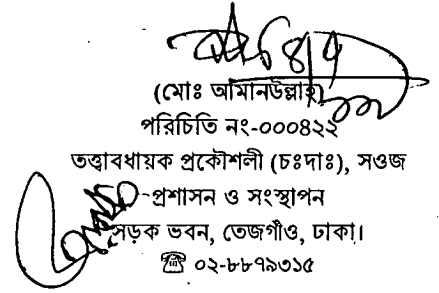 (মোঃ আমানউল্লাহ)
পরিচিতি নং-০০০৪২২
তত্ত্বাবধায়ক প্রকৌশলী (চঃদাঃ), সওজ
প্রশাসন ও সংস্থাপন
সড়ক ভবন, তেজগাঁও, ঢাকা।
☎ ০২-৮৮৭৯৩১৫